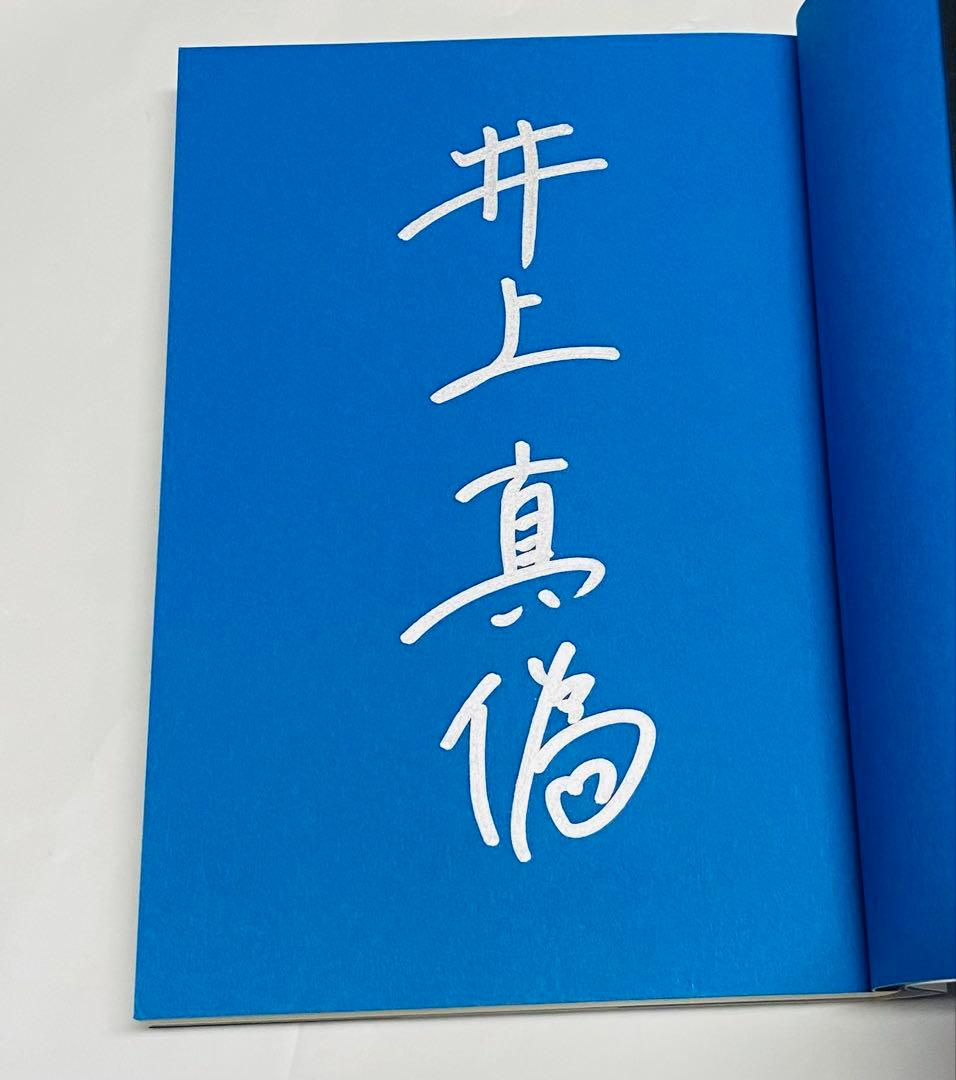 井上真偽